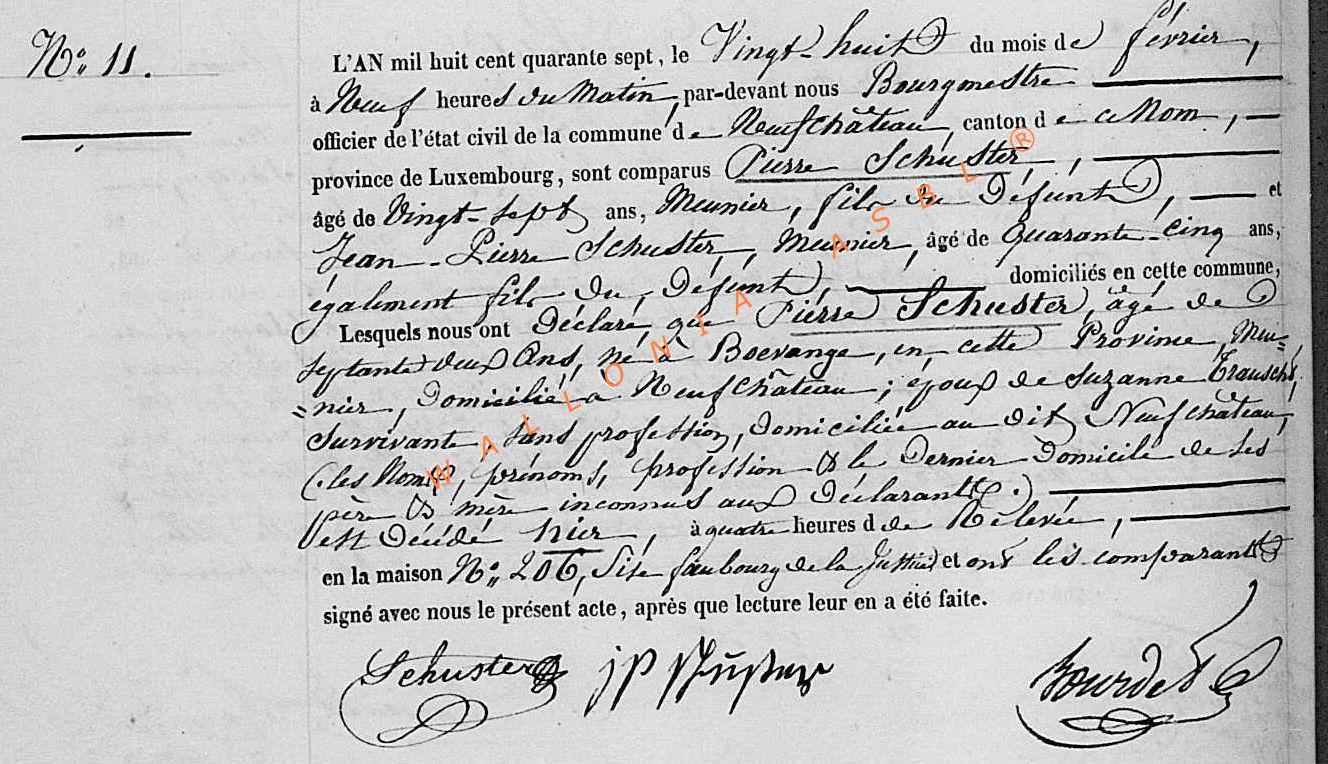 N° 11.
L'AN mil huit cent quarante sept, le Vingt-huit du mois de février,
à Neuf heures du Matin, par-devant nous Bourgmestre
officier de l'état civil de la commune de Neufchâteau, canton de ce Nom,
province de Luxembourg, sont comparus Pierre Schuster,
âgé de Vingt-sept ans, Meunier, fils du Défunt, et
Jean-Pierre Schuster, Meunier, âgé de Quarante-cinq ans,
également fils du Défunt, domiciliés en cette commune,
Lesquels nous ont Déclaré, que Pierre Schuster, âgé de
septante deux Ans, né à Boevange, en cette Province, Meu=
=nier, Domicilié à Neufchâteau; époux de Suzanne Trausch,
survivante, sans profession, domiciliée au dit Neufchâteau,
(les Noms, prénoms, profession & le Dernier Domicile de ses
père & mère inconnus aux Déclarants.)
est Décédé hier, à quatre heures de Relevée,
en la maison N° 206, Sise faubourg de la et ont les comparants
signé avec nous le présent acte, après que lecture leur en a été faite.
Schuster JP Schuster Bourdet
WALLONIA ASBL ®